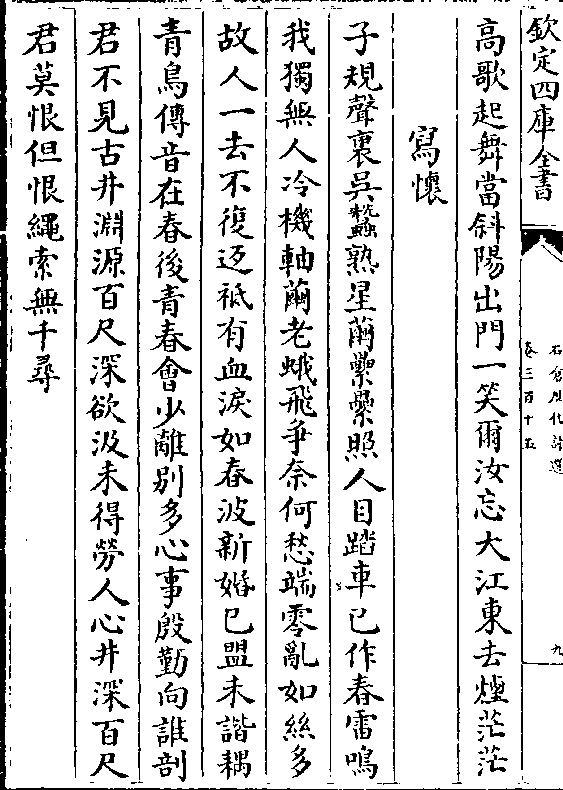 欽定四庫全書
石倉歷代詩選
卷三百十五
九
高歌起舞當斜陽出門一笑爾汝忘大江東去煙茫茫
寫懷
子規聲裏吳蠶熟星繭纍纍照人目踏車已作春雷鳴
我獨無人冷機軸繭老蛾飛爭奈何愁端零亂如絲多
故人一去不復返祗有血淚如春波新婚已盟未諧耦
青鳥傳音在春後青春會少離别多心事殷勤向誰剖
君不見古井淵源百尺深欲汲未得勞人心井深百尺
君莫恨但恨繩索無千尋